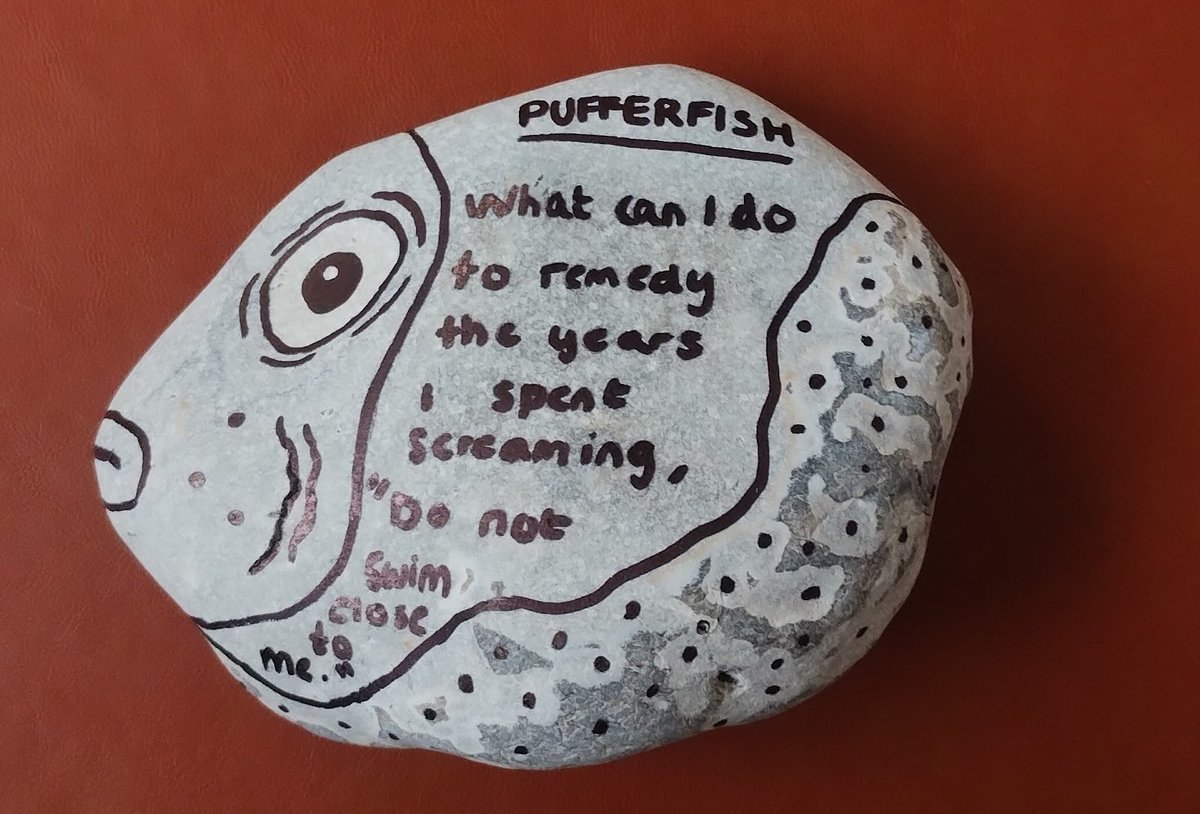 PUFFERFISH
What can I do
to remedy
the years
I spent
screaming,
"Do not
swim
close
to
me."